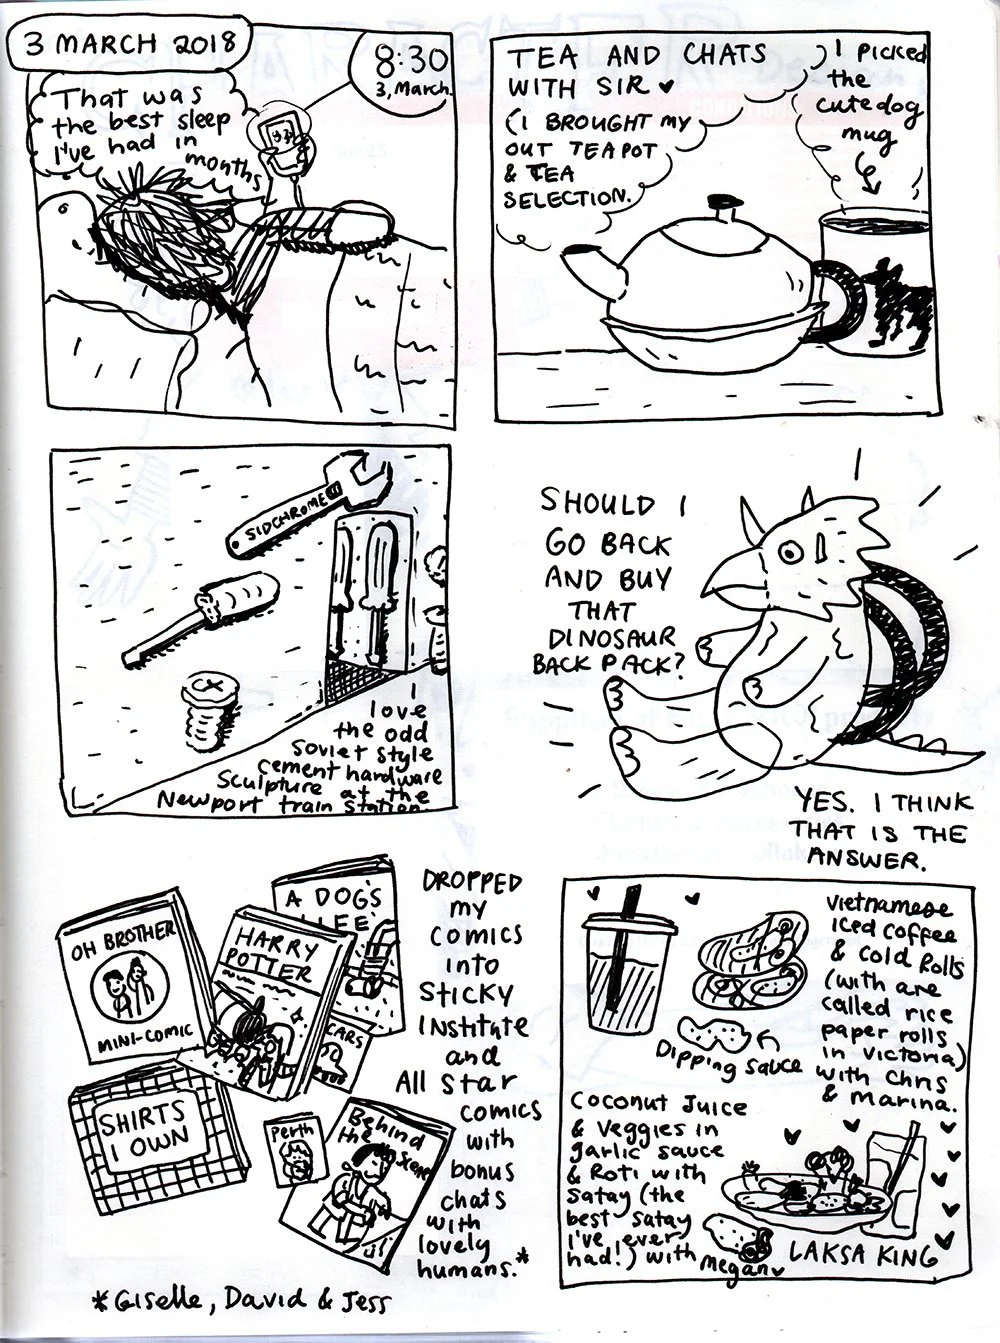 3 MARCH 2018
8:30
3, March.
That was
the best sleep
I've had in
months
TEA AND CHATS
WITH SIR ♥
(I BROUGHT MY
OUT TEAPOT
& TEA
SELECTION.
I PICKED
the
cute dog
mug
SIDCHROME
I
love
the odd
Soviet style
cement hardware
Sculpture at the
Newport train station
SHOULD I
GO BACK
AND BUY
THAT
DINOSAUR
BACK PACK?
YES. I THINK
THAT IS THE
ANSWER.
OH BROTHER
MINI-COMIC
HARRY
POTTER
A DOG'S
CARS
SHIRTS
I OWN
Perth
Behind
the Scene
DROPPED
my
comics
into
Sticky
Institute
and
All Star
comics
with
bonus
chats
with
lovely
humans.*
*Giselle, David & Jess
Vietnamese
iced coffee
& cold rolls
(with are
called rice
paper rolls
in Victoria)
with Chris
& Marina.
Dipping sauce
Coconut Juice
& veggies in
garlic sauce
& Roti with
Satay (the
best satay
I've ever
had!) with
Megan ♥
LAKSA KING